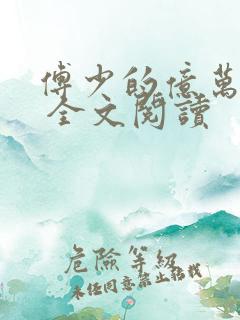 傅少的億萬
全文閱讀
危險等級
未经同意禁止转载